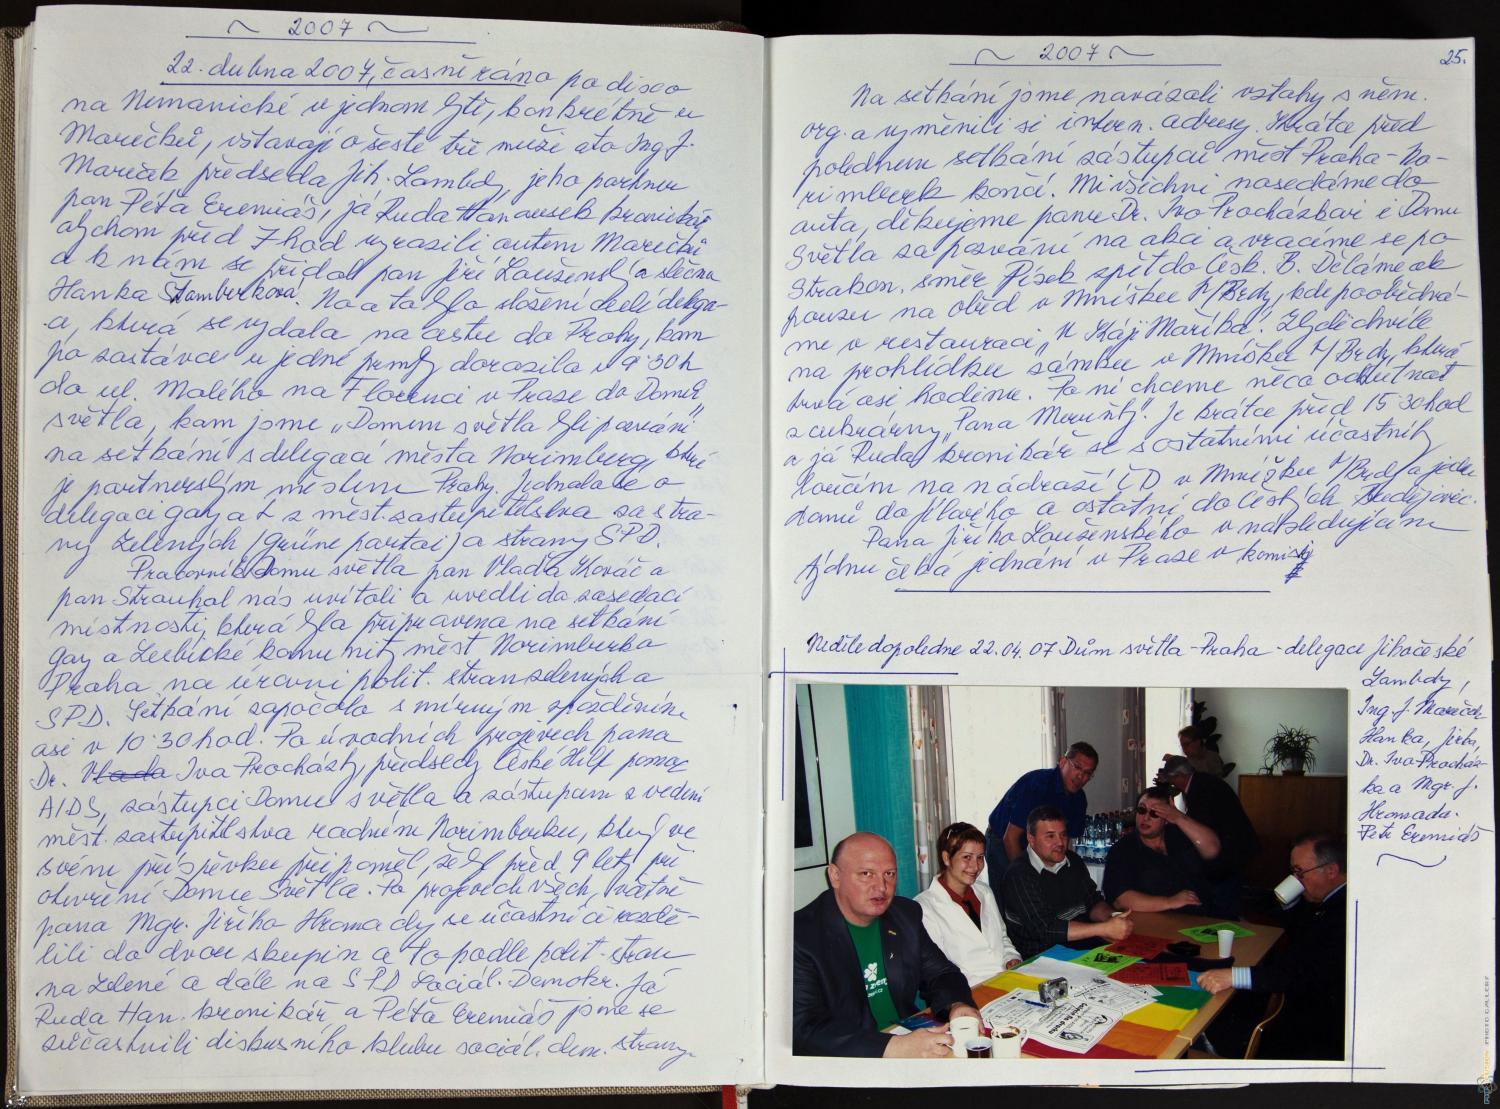 ~ 2007 ~
22. dubna 2007, časně ráno po disco
na Nemanické v jednom bytě, konkrétně u
Marečků, vstávají o šesté tři muži a to Ing J.
Mareček předseda Jih. Lambdy, jeho partner
pan Péťa Eremiáš, já Ruda Hanousek kronikář,
abychom před 7 hod vyrazili autem Marečků
a k nám se přidal pan Jiří Louženský a slečna
Hanka Štamberková. No a to bylo složení celé delega-
ce, která se vydala na cestu do Prahy, kam
po zastávce u jedné pumpy dorazila v 9.30 h
do ul. Malého na Florenci v Praze do Domu
světla, kam jsme „Domem světla byli pozváni"
na setkání s delegací města Norimberg, které
je partnerským městem Prahy. Jednalo se o
delegaci gay a L z měst. zastupitelstva za stra-
ny Zelených (grüne partai) a strany SPD.
Pracovník Domu světla pan Vlaďa Kováč a
pan Strouhal nás uvítali a uvedli do zasedací
místnosti, která byla připravena na setkání
gay a Lesbické komunity měst Norimberka
Praha na úrovni polit. stran zelených a
SPD. Setkání započalo s mírným zpožděním
asi v 10.30 hod. Po úvodních projevech pana
Dr. Vlada Iva Procházky, předsedy České Hilf pomoc
AIDS, zástupci Domu světla a zástupcem z vedení
měst. zastupitelstva radném Norimberku, který ve
svém příspěvku připoměl, že byl před 9 lety při
otevření Domu Světla. Po projevech všech, včetně
pana Mgr. Jiřího Hromady se účastníci rozdě-
lili do dvou skupin a to podle polit. stran
na Zelené a dále na SPD Sociál. Demokr. Já
Ruda Han. kronikář a Péťa Eremiáš jsme se
zúčastnili diskusního klubu sociál. dem. strany.
~ 2007 ~
25.
Na setkání jsme navázali vztahy s něm.
org. a vyměnili si intern. adresy. Krátce před
polednem setkání zástupců měst Praha - No-
rimberk končí. Mi všichni nasedáme do
auta, děkujeme panu Dr. Ivo Procházkovi i Domu
Světla za pozvání na akci a vracíme se po
Strakon. směr Písek zpět do Česk. B. Děláme ale
pouzu na oběd v Mníšku P/Brdy, kde poobědvá-
me v restauraci „U Káji Maříka". Zbyde chvíle
na prohlídku zámku v Mníšku P/Brdy, která
trvá asi hodinu. Po ní chceme něco ochutnat
z cukrárny „Pana Meruňky". Je krátce před 15.30 hod
a já Ruda kronikář se s ostatními účastníky
loučím na nádraží ČD v Mníšku P/Brdy a jedu
domů do Jílového a ostatní do Českých Budějovic.
Pana Jiřího Louženského v následujícím
týdnu čeká jednání v Praze v komisy
Neděle dopoledne 22.04.07 Dům světla - Praha - delegace Jihočeské
Lambdy,
Ing. J. Mareček
Hanka, Jirka,
Dr. Ivo Procház-
ka a Mgr. J.
Hromada.
Petr Eremiáš